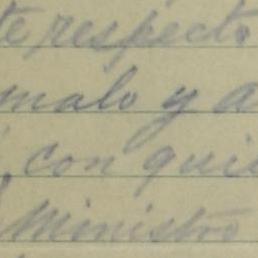 te respecto
malo y a
con quie
Ministro